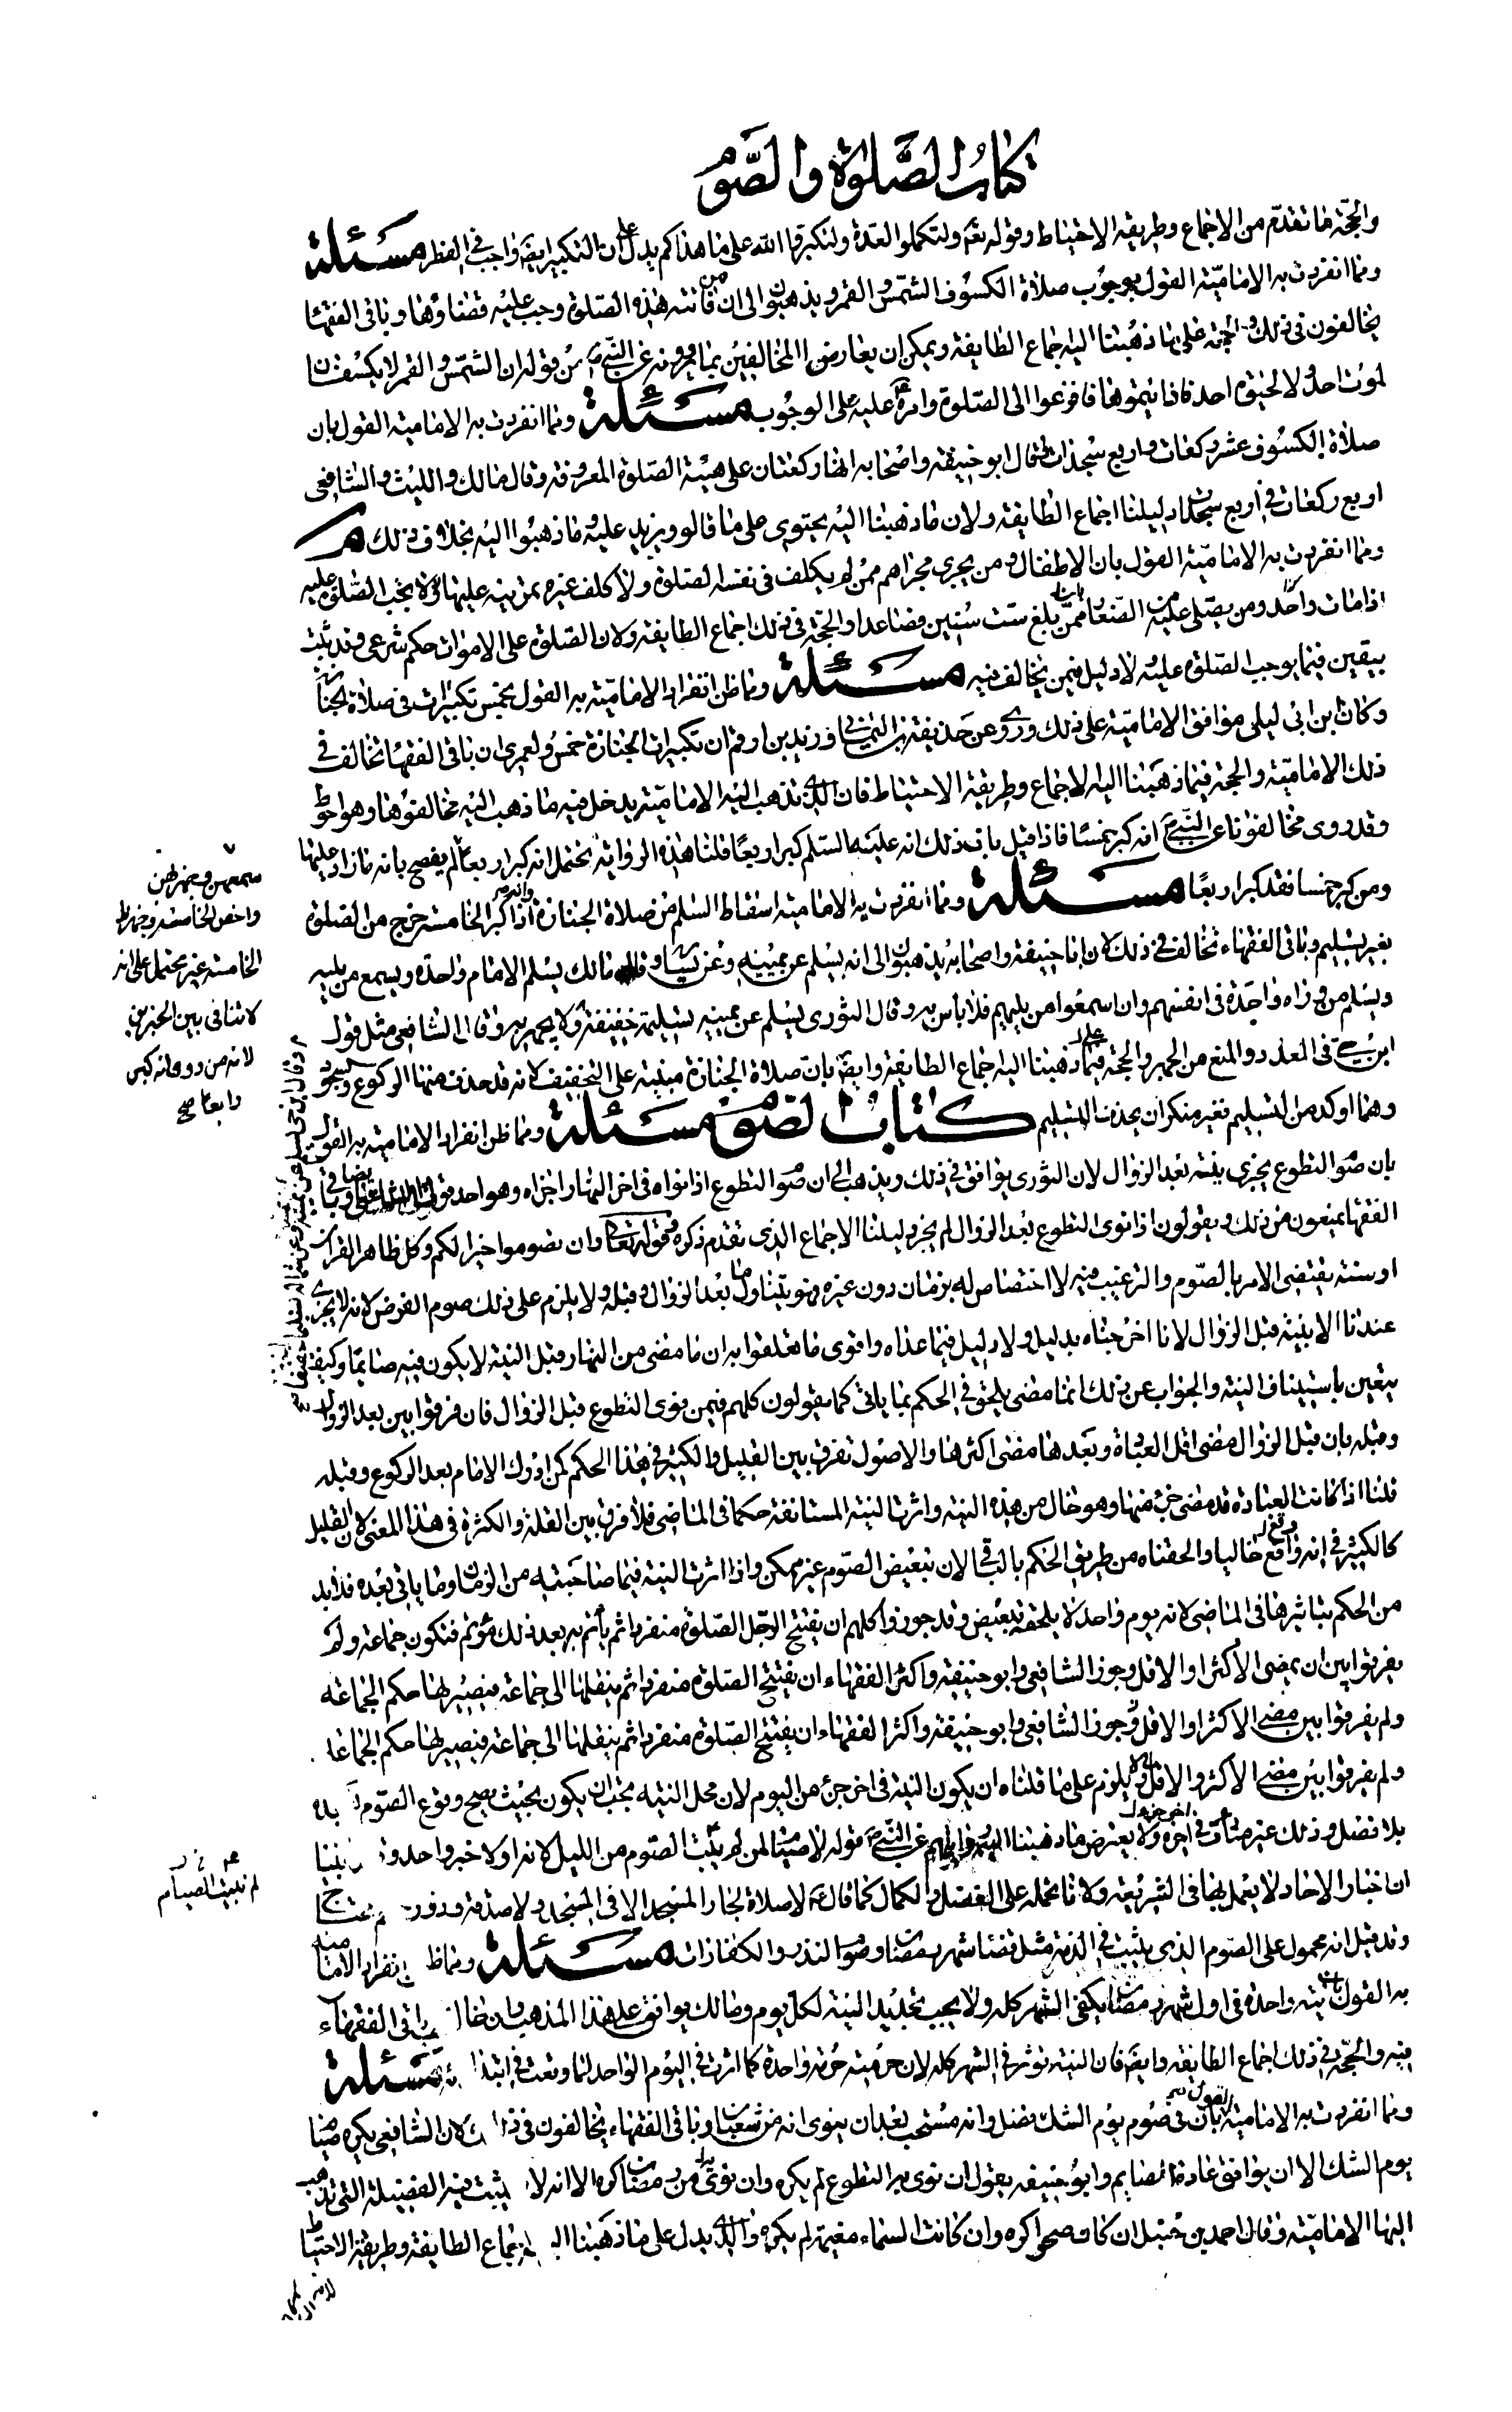 كتاب الصلوة والصوم
والحجّة ما تقدّم من الاجماع وطريقة الاحتياط وقوله تعم ولتكملوا العدة ولتكبروا الله على ما هداكم يدل على ان التكبير ايضا واجب في الفطر مسئلة
ومما انفردت به الامامية القول بوجوب صلاة الكسوف الشمس والقمر ويذهبون الى ان من فاتته هذه الصلوة وجب عليه قضاؤها وباقى الفقهاء
يخالفون في ذلك والحجة على ما ذهبنا اليه اجماع الطايفة ويمكن ان يعارض المخالفين بما يروونه عن النبي ص من قوله ان الشمس والقمر لا يكسفان
لموت احد ولا لحيوة احد فاذا رايتموها فافزعوا الى الصلوة وامره عليه على الوجوب مسئلة ومما انفردت به الامامية القول بان
صلاة الكسوف عشر ركعات واربع سجدات وقال ابو حنيفة واصحابه انها ركعتان على هيئة الصلوة المعروفة وقال مالك والليث والشافعى
اربع ركعات في اربع سجدات دليلنا اجماع الطايفة ولان ما ذهبنا اليه يحتوى على ما قالوه ويزيد عليه وما ذهبوا اليه بخلاف ذلك
ومما انفردت به الامامية القول بان الاطفال ومن يجرى مجراهم ممن لم يكلف في نفسه الصلوة ولا كلف غيره تمرينه عليها لا يجب الصلوة عليه
اذا مات واحد ومن يصلى عليه من الصغار ممن بلغ ست سنين فصاعدا والحجة في ذلك اجماع الطايفة ولان الصلوة على الاموات حكم شرعى وقد ثبت
بيقين فيما يوجب الصلوة عليه لا دليل فيمن يخالف فيه مسئلة ومما ظن انفراد الامامية به القول بخمس تكبيرات في صلاة الجنازة
وكان ابن ابى ليلى موافق الامامية على ذلك وروى عن حذيفة بن اليمان وزيد بن ارقم ان تكبيرات الجنازة خمس ولعمرى ان باقى الفقهاء تخالف في
ذلك الامامية والحجة فيما ذهبنا اليه الاجماع وطريقة الاحتياط فان الذى تذهب اليه الامامية يدخل فيه ما ذهب اليه مخالفوها وهو احوط
وقد روى مخالفونا عن النبي ص انه كبر خمسا فاذا قيل بازاء ذلك انه عليه السلم كبر اربعا قلنا هذه الرواية يحتمل انه كبر اربعا لم يفصح بانه ما زاد عليها
ومن كبر خمسا فقد كبر اربعا مسئلة ومما انفردت به الامامية اسقاط السلم من صلاة الجنازة وانه اذا كبر الخامسة خرج من الصلوة
بغير تسليم وباقى الفقهاء تخالف في ذلك لان ابا حنيفة واصحابه يذهبون الى انه يسلم عن يمينه وعن يساره وقال مالك يسلم الامام واحدة ويسمع من يليه
ويسلم من وراه واحدة في انفسهم وان اسمعوا من يليهم فلا باس به وقال الثورى يسلم عن يمينه تسليمة خفيفة ولا يجهر به وقال الشافعى مثل قول
ابن حى في العدد والمنع من الجهر والحجة على ما ذهبنا اليه اجماع الطايفة وايضا بان صلاة الجنازة مبنية على التخفيف لانه قد حذف منها الركوع والسجود
وهما اوكد من التسليم فغير منكر ان يحذف التسليم كتاب الصوم مسئلة ومما ظن انفراد الامامية به القول
بان صوم التطوع يجزى بنية بعد الزوال لان الثورى يوافق في ذلك ويذهب الى ان صوم التطوع اذا نواه في اخر النهار اجزاه وهو احد قولى الشافعى وباقى
الفقها يمنعون من ذلك ويقولون اذا نوى التطوع بعد الزوال لم يجز دليلنا الاجماع الذى تقدم ذكره وقوله تعالى وان تصوموا خير لكم وكل ظاهر القرآن
او سنة يقتضى الامر بالصوم والترغيب فيه لا اختصاص له بزمان دون غيره فهو يتناول ما بعد الزوال وقبله ولا يلزم على ذلك صوم الفرض لانه لا يجزى
عندنا الا بنية قبل الزوال لانا اخرجناه بدليل ولا دليل فيما عداه واقوى ما تعلقوا به ان ما مضى من النهار وقبل النية لا يكون فيه صايما وكيف
يتغير باستيناف النية والجواب عن ذلك انما مضى يلحق في الحكم بما ياتى كما يقولون كلهم فيمن نوى التطوع قبل الزوال فان فرقوا بين بعد الزوال
وقبله بان قبل الزوال مضى اقل العبادة وبعدها مضى اكثرها والاصول تفرق بين القليل والكثير في هذا الحكم كمن ادرك الامام بعد الركوع وقبله
قلنا اذا كانت العبادة قد مضى جزء منها وهو خال من هذه النية واثرت النية المستانفة حكما في الماضى فلا فرق بين القلة والكثرة في هذا المعنى لان القليل
كالكثير في انه وقع خاليا والحقناه من طريق الحكم بالباقى لان تبعيض الصوم غير ممكن واذا اثرت النية فيما صاحبته من الزمان وما ياتى بعده فلا بد
من الحكم بتاثيرها في الماضى لانه يوم واحد لا يلحقه تبعيض وقد جوزوا كلهم ان يفتتح الرجل الصلوة منفردا ثم ياتم به بعد ذلك مؤتم فتكون جماعة ولم
يفرقوا بين ان يمضى الاكثر او الاقل وجوز الشافعى وابو حنيفة واكثر الفقهاء ان يفتتح الصلوة منفردا ثم ينقلها الى جماعة فيصير لها حكم الجماعة
ولم يفرقوا بين مضى الاكثر او الاقل وجوز الشافعى وابو حنيفة واكثر الفقهاء ان يفتتح الصلوة منفردا ثم ينقلها الى جماعة فيصير لها حكم الجماعة
ولم يفرقوا بين مضى الاكثر والاقل ولا يلزم على ما قلناه ان يكون النية في اخر جزء من اليوم لان محل النية يجب ان يكون بحيث يصح وقوع الصوم
بلا فصل وذلك غير متأت في اخر جزء ولا يعترض ما ذهبنا اليه عن النبي ص قوله لا صيام لمن لم يبت الصوم من الليل لانه اولا خبر واحد وقد بينا
ان اخبار الاحاد لا يعمل بها في الشريعة ولانا نحمله على الفضل والكمال كما قال ع لا صلاة لجار المسجد الا في المسجد ولا صدقة وذو رحم محتاج
وقد قيل انه محمول على الصوم الذى يثبت في الذمة مثل قضا شهر رمضان وصوم النذر والكفارات مسئلة ومما ظن انفراد الامامية
به القول بان نية واحدة في اول شهر رمضان يكفى الشهر كله ولا يجب تجديد النية لكل يوم ومالك يوافق على هذا المذهب وان خالف باقى الفقهاء
فيه والحجة في ذلك اجماع الطايفة وايضا فان النية تؤثر في الشهر كله لان حرمته حرمة واحدة كما اثرت في اليوم الواحد لما وقعت في ابتدائه مسئلة
ومما انفردت به الامامية القول بان في صوم يوم الشك فضل وانه مستحب بعد ان ينوى انه من شعبان وباقى الفقهاء يخالفون في ذلك لان الشافعى يكره صيام
يوم الشك الا ان يوافق عادة لصايم وابو حنيفة يقول ان نوى به التطوع لم يكره وان نوى به من رمضان كره الا انه لا يثبت فيه الفضيلة التى تذهب
اليها الامامية وقال احمد بن حنبل ان كان صحوا كره وان كانت السماء مغيمة لم يكره والذى يدل على ما ذهبنا اليه اجماع الطايفة وطريقة الاحتياط
الخامسة غير محتمل على انه
لا تنافى بين الخبرين
لانه من روى انه كبر
اربعا صح